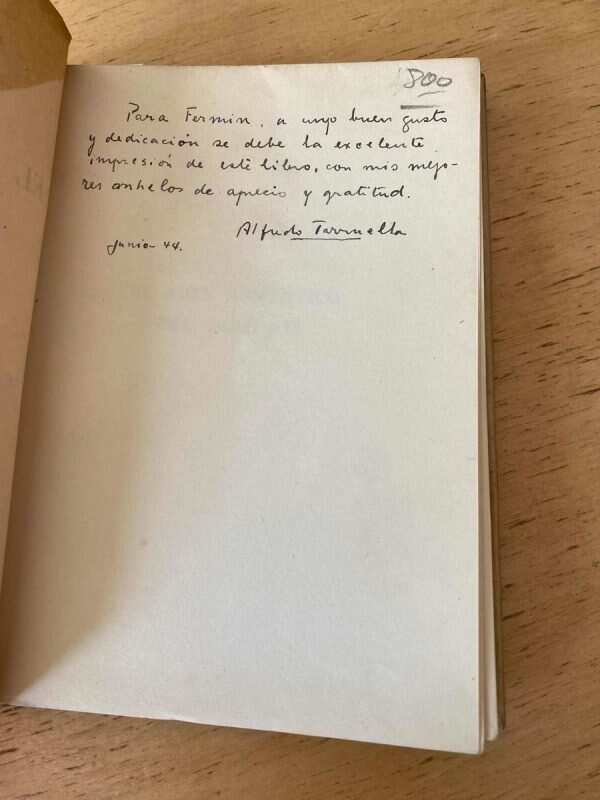 800
Para Fermin, a cuyo buen gusto
y dedicación se debe la excelente
impresión de este libro, con mis mejo-
res anhelos de aprecio y gratitud.
Alfredo Tarruella
Junio 44.